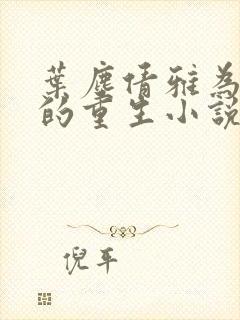 葉塵倩雅為
的重生小說
倪平